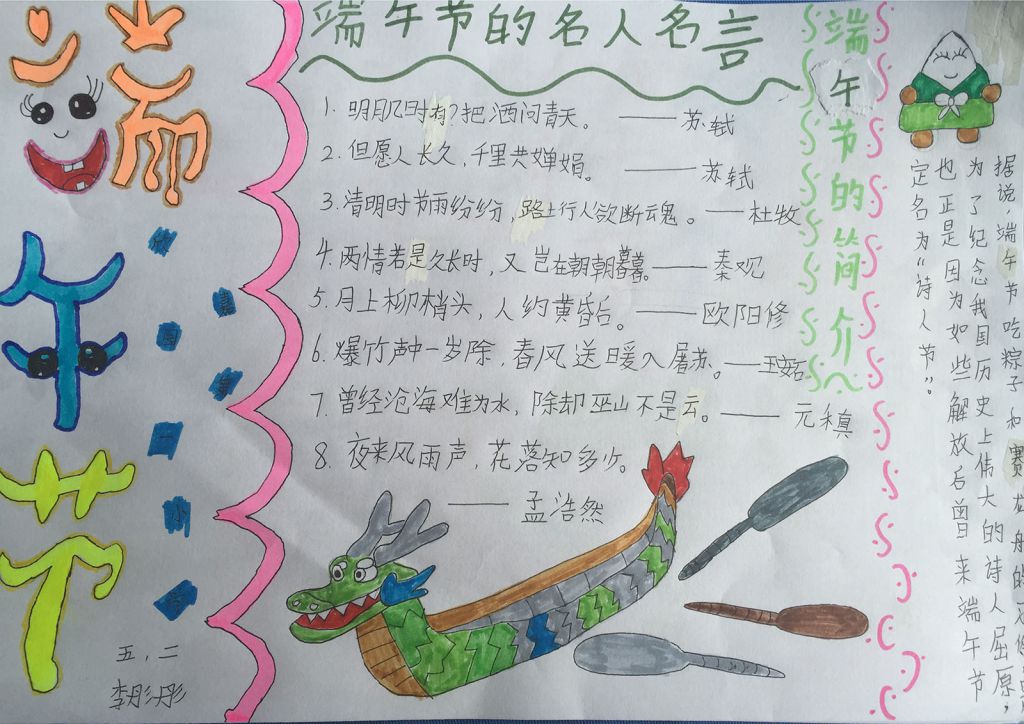 端午节
欣嘉园第一小学
五，二
李彤彤
端午节的名人名言
1. 明月几时有?把洒问青天。——苏轼
2. 但愿人长久，千里共婵娟。——苏轼
3. 清明时节雨纷纷，路上行人欲断魂。——杜牧
4. 两情若是久长时，又岂在朝朝暮暮。——秦观
5. 月上柳梢头，人约黄昏后。——欧阳修
6. 爆竹声中一岁除，春风送暖入屠苏。——王安石
7. 曾经沧海难为水，除却巫山不是云。——元稹
8. 夜来风雨声，花落知多少。
——孟浩然
端午节的简介
据说，端午节吃粽子和赛龙舟的
为了纪念我国历史上伟大的诗人屈原，
也正是因为如些解放后曾来端午节
定名为“诗人节”。